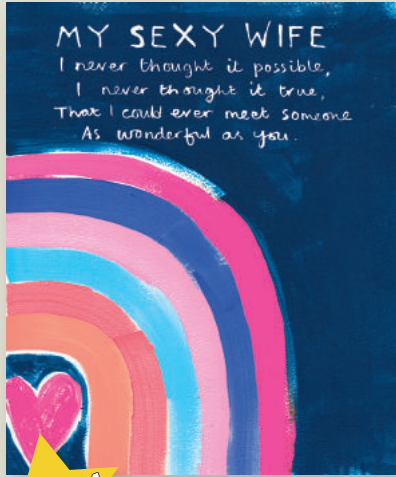 MY SEXY WIFE
I never thought it possible,
I never thought it true,
That I could ever meet someone
As wonderful as you.